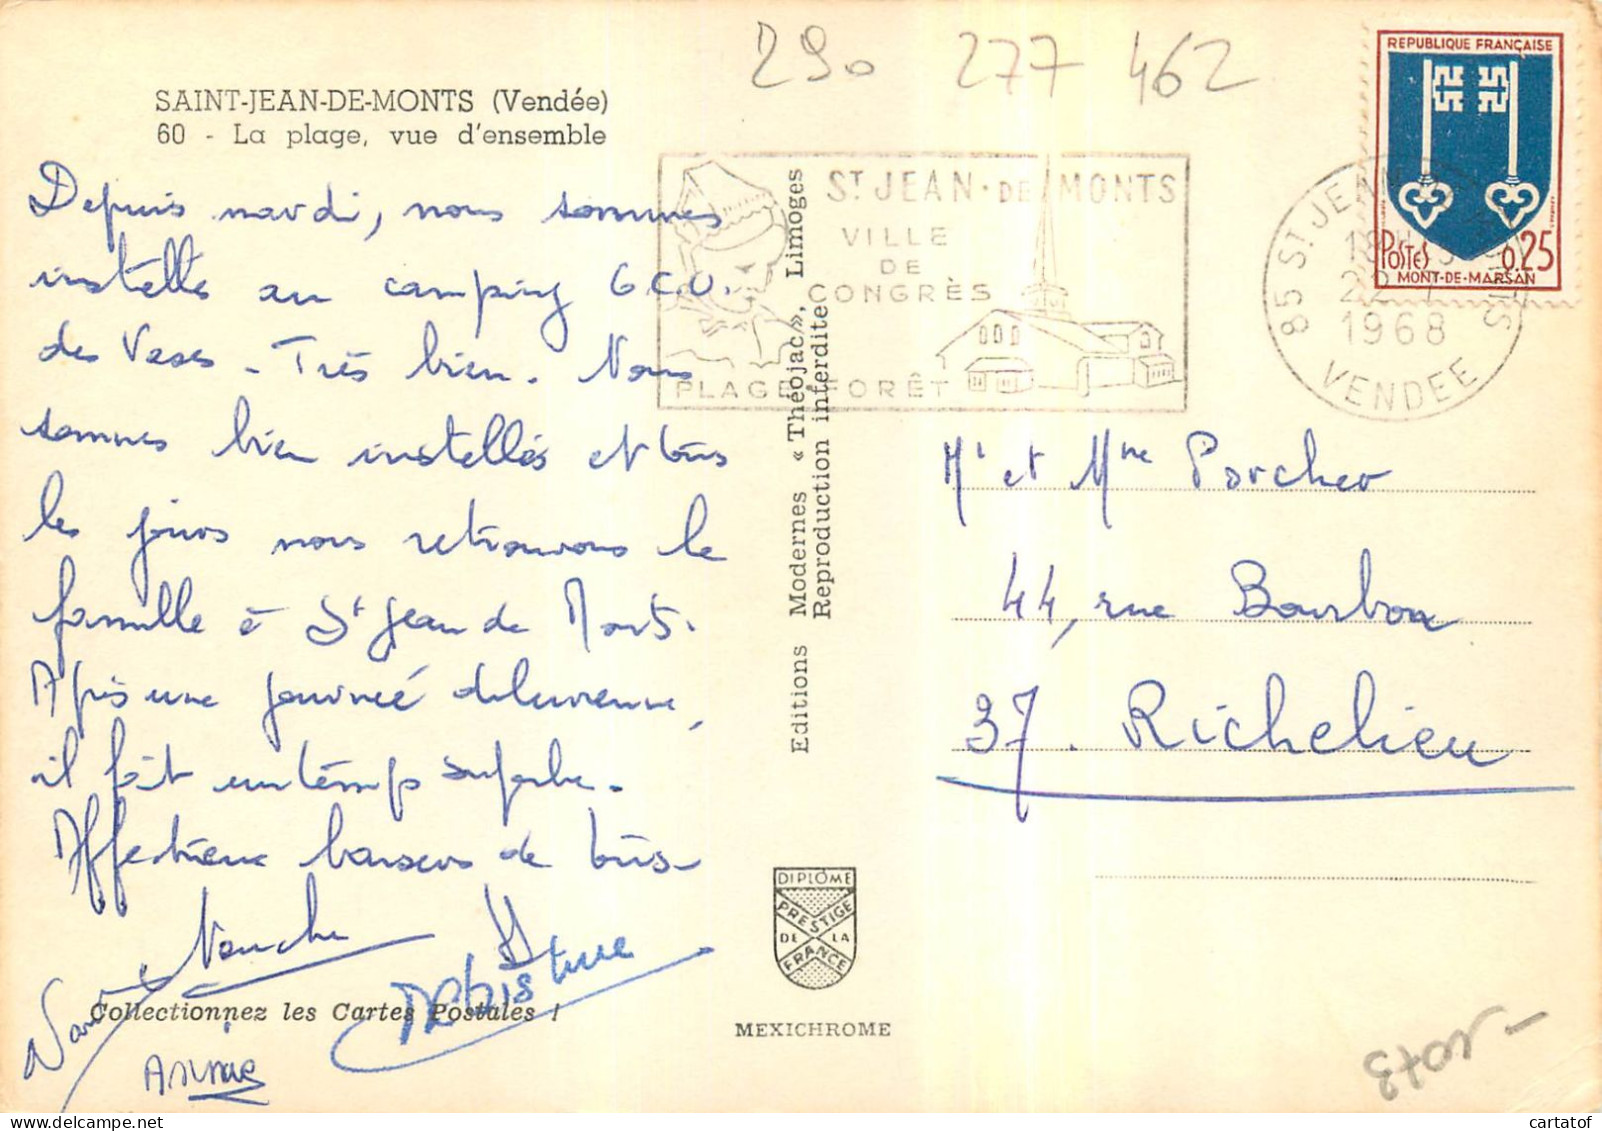 290 277 462
SAINT-JEAN-DE-MONTS (Vendée)
60 - La plage, vue d'ensemble
Depuis mardi, nous sommes
installés au camping G.C.U.
des Vases - Très bien. Nous
sommes bien installés et tous
les jours nous retrouvons la
famille à St Jean de Monts.
Après une journée diluvienne,
il fait un temps superbe.
Affectueux baisers de tous
Annie
Christine
Collectionnez les Cartes Postales !
Editions Modernes « Théojac », Limoges
Reproduction interdite
DIPLÔME
PRESTIGE
DE LA
FRANCE
MEXICHROME
ST JEAN-DE-MONTS
VILLE
DE
CONGRÈS
PLAGE FORÊT
REPUBLIQUE FRANÇAISE
POSTES 0,25
MONT-DE-MARSAN
85 ST JEAN
18H
22-7
1968
VENDEE
Mr et Mme Porcher
44, rue Bourbon
37. Richelieu
cartatof